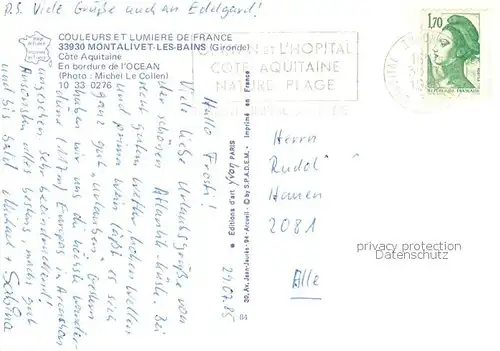 P.S. Viele Grüße auch an Eddgard!
COULEURS ET LUMIERE DE FRANCE
33930 MONTALIVET-LES-BAINS (Gironde)
Côte Aquitaine
En bordure de l'OCEAN
(Photo : Michel Le Collen)
10 33 0276
ET L'HOPITAL
COTE AQUITAINE
NATURE PLAGE
1,70
RÉPUBLIQUE FRANÇAISE
Hallo Frosti!
Viele liebe Urlaubsgrüße von
der schönen Atlantik-Küste. Bei
dem guten Wetter, hohen Wellen
und primа Wein läßt es sich
ganz gut "urlauben". Gestern
haben wir uns die höchste Wander-
düne (117m) Europas in Arcachon
angesehen. Sehr beeindruckend!
Ansonsten alles bestens, macht's gut
und bis bald Michael + Sabina
29.07.85
Editions d'art Yvon PARIS
30, Av. Jean-Jaurès - 94 - Arcueil - © by S.P.A.D.E.M. - Imprimé en France
84
Herrn
Rudol'
Hansen
2081
Alle
privacy protection
Datenschutz